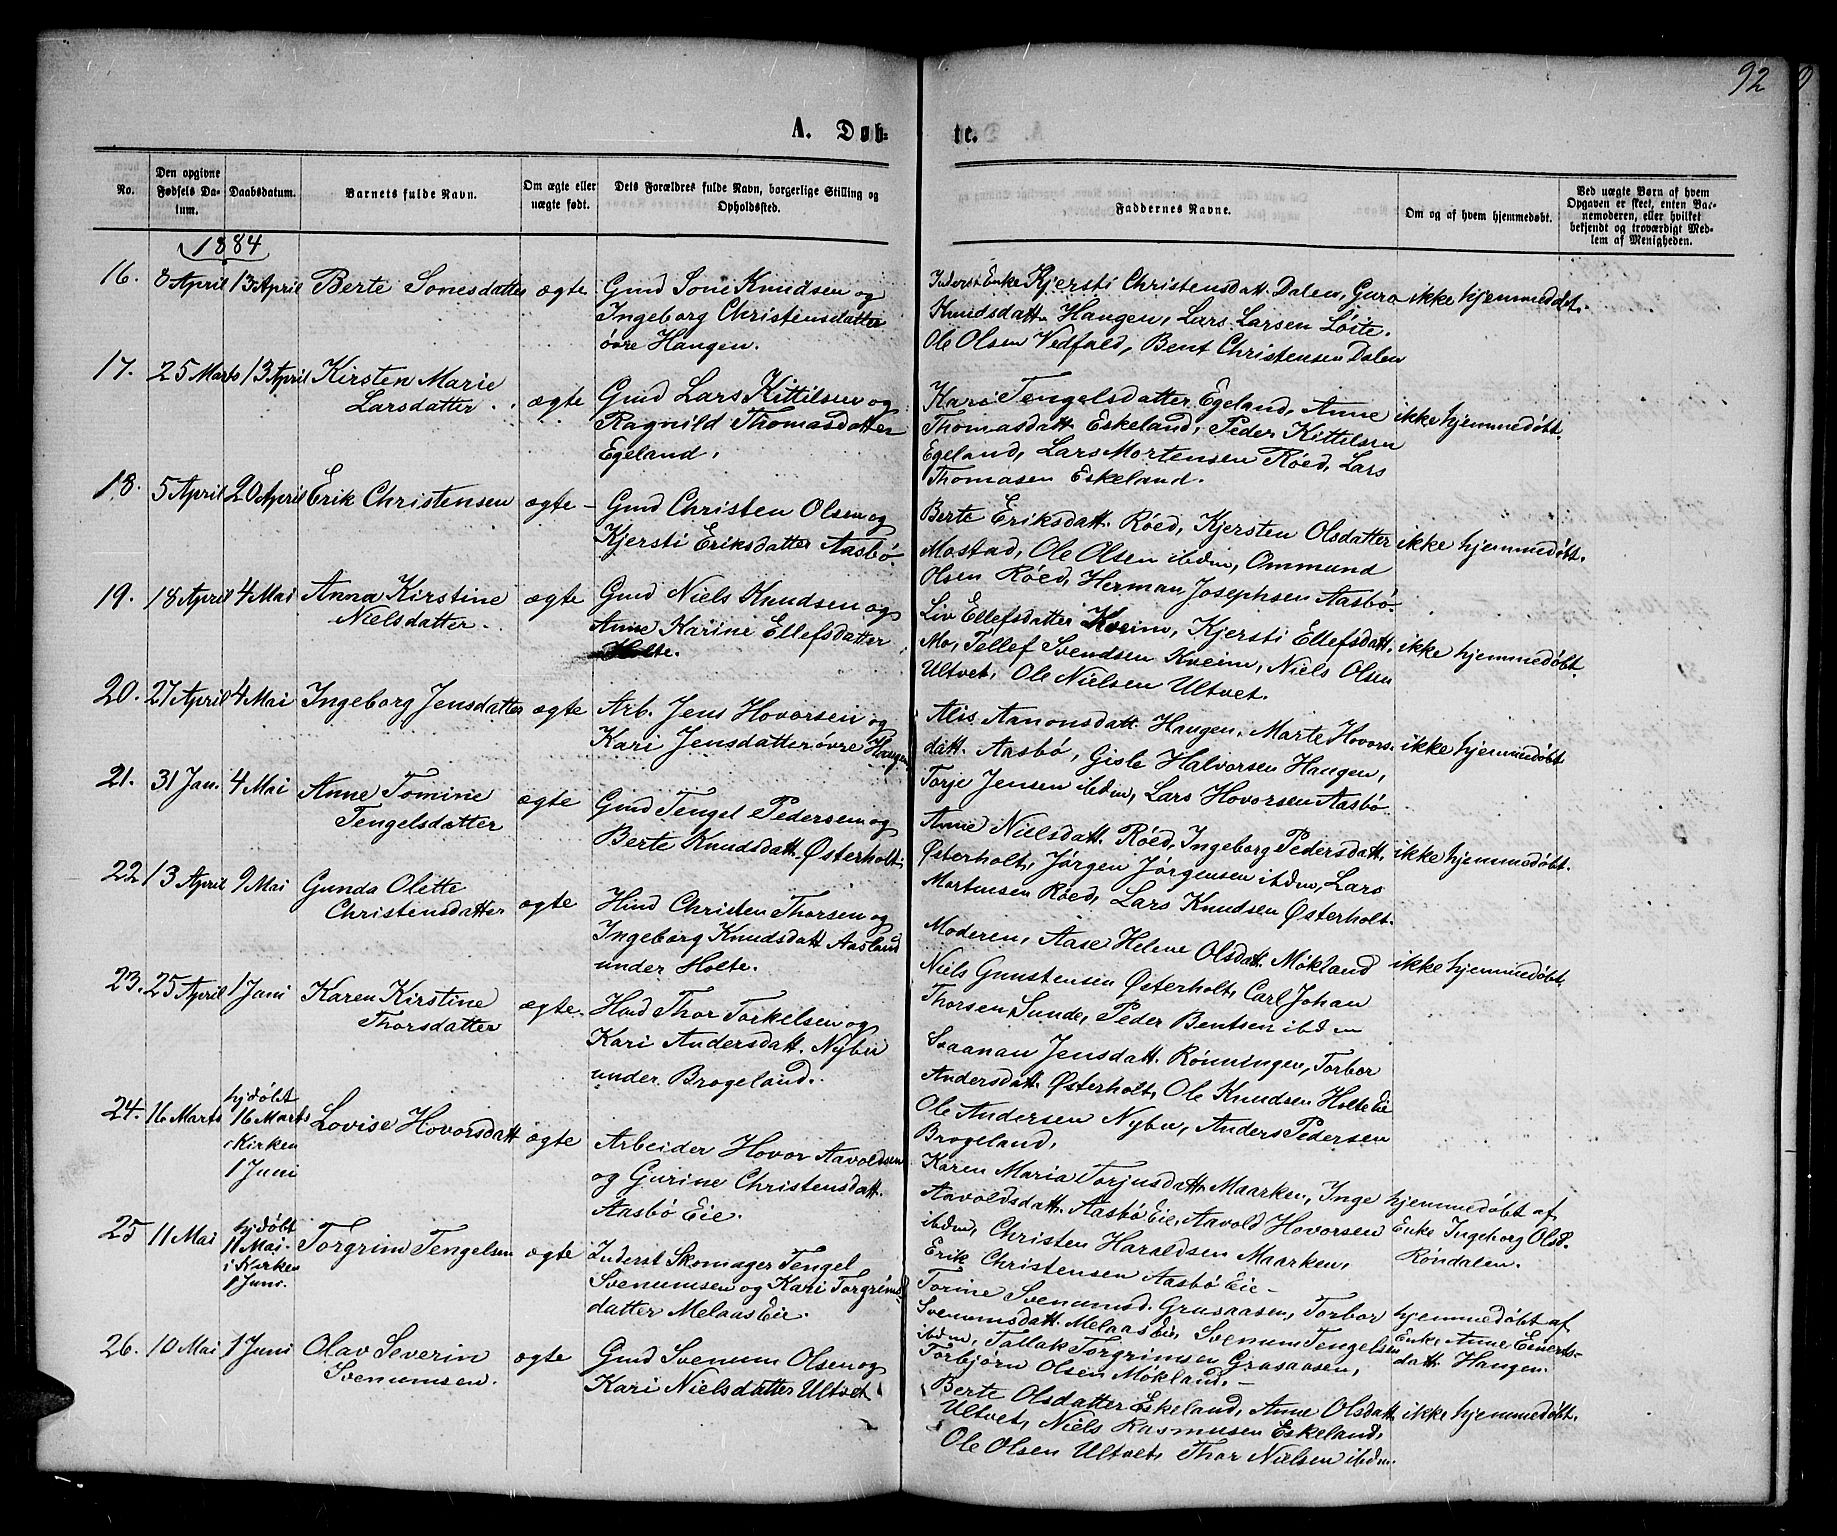 92
A. Døb-
te.
No.
Den opgivne Fødsels Da-
tum.
Daabsdatum.
Barnets fulde Navn.
Om ægte eller
uægte født.
Dets Forældres fulde Navn, borgerlige Stilling og
Opholdssted.
Faddernes Navne.
Om og af hvem hjemmedøbt.
Ved uægte Børn af hvem
Opgaven er skeet, enten Bar-
nemoderen, eller hvilket
bekjendt og troværdigt Med-
lem af Menigheden.
1884
16. 8 April 13 April Berte Sonesdatter ægte
Gmd Sone Knudsen og
Ingeborg Christensdatter
øvre Haugen.
Inderst Enke Kjersti Christensdatt. Dalen, Guro
Knudsdatt. Haugen, Lars Larsen Løite.
Ole Olsen Vedfald, Bent Christensen Dalen
ikke hjemmedøbt.
17. 25 Marts 13 April Kirsten Marie
Larsdatter. ægte
Gmd Lars Kittilsen og
Ragnild Thomasdatter
Egeland.
Kari Tengelsdatter Egeland, Anne
Thomasdatt. Eskeland, Peder Kittilsen
Egeland, Lars Mortensen Røed, Lars
Thomasen Eskeland.
ikke hjemmedøbt.
18. 5 April 20 April Erik Christensen ægte -
Gmd Christen Olsen og
Kjersti Eriksdatter Aasbø.
Berte Eriksdatt. Røed, Kjersten Olsdatter
Mostad, Ole Olsen ibdm, Ommund
Olsen Røed, Herman Josephsen Aasbø.
ikke hjemmedøbt.
19. 18 April 4 Mai Anna Kirstine
Nielsdatter. ægte
Gmd Niels Knudsen og
Anne Karine Ellefsdatter
Holte.
Liv Ellefsdatter Kveim, Kjersti Ellefsdatt.
Mo, Tellef Svendsen Kveim, Niels Olsen
Ultvet, Ole Nielsen Ultvet.
ikke hjemmedøbt.
20. 27 April 4 Mai Ingeborg Jensdatter ægte
Arb. Jens Hovorsen og
Kari Jensdatter øvre Haugen
Alis Aanonsdatt. Haugen, Marte Hovors-
datt. Aasbø, Gisle Halvorsen Haugen,
Torje Jensen ibdm, Lars Hovorsen Aasbø.
ikke hjemmedøbt
21. 31 Jan. 4 Mai Anne Tomine
Tengelsdatter ægte
Gmd Tengel Pedersen og
Berte Knudsdatt. Østerholt.
Anne Nielsdatt. Røed, Ingeborg Pedersdatt.
Østerholt, Jørgen Jørgensen ibdm, Lars
Mortensen Røed, Lars Knudsen Østerholt.
ikke hjemmedøbt.
22 13 April 9 Mai Gunda Olette
Christensdatter ægte
Hmd Christen Thorsen og
Ingeborg Knudsdatt. Aasland
under Holte.
Moderen, Aase Helene Olsdatt. Møkland
Niels Gunstensen Østerholt, Carl Johan
Thorsen Sunde, Peder Bentsen ibdm
ikke hjemmedøbt.
23. 25 April 1 Juni Karen Kirstine
Thorsdatter ægte.
Hmd Thor Torkelsen og
Kari Andersdatt. Nybu
under Brogeland.
Svaanau Jensdatt. Rønningen, Torbor
Andersdatt. Østerholt, Ole Knudsen Holte Eie
Ole Andersen Nybu, Anders Pedersen
Brogeland,
24. 16 Marts hjdøbt
16 Marts
i Kirken
1 Juni
Lovise Hovorsdatt. ægte
Arbeider Hovor Aavoldsen
og Gurine Christensdatt.
Aasbø Eie.
Karen Maria Torjusdatt. Maarken, Inge
Aavoldsdatt. Aasbø Eie, Aavold Hovorsen
ibdm, Christen Haraldsen Maarken,
Erik Christensen Aasbø Eie -
hjemmedøbt af
Enke Ingeborg Olsd.
Røndalen.
25 11 Mai hjdøbt
11 Mai.
i Kirken
1 Juni.
Torgrim Tengelsen ægte
Inderst Skomager Tengel
Svenumsen og Kari Torgrims-
datter Melaas Eie.
Torine Svenumsd. Grasaasen, Torbor
Svenumsdatt. Melaas Eie, Svenum Tengelsen
ibdm, Tallak Torgrimsen Grasaasen,
Torbjørn Olsen Møkland. -
hjemmedøbt af
Enke Anne Einerts-
datt. Haugen.
26. 10 Mai 1 Juni Olav Severin
Svenumsen. ægte
Gmd Svenum Olsen og
Kari Nielsdatter Ultvet
Berte Olsdatter Eskeland, Anne Olsdatt.
Ultvet, Niels Rasmusen Eskeland,
Ole Olsen Ultvet, Thor Nielsen ibdm.
ikke hjemmedøbt.